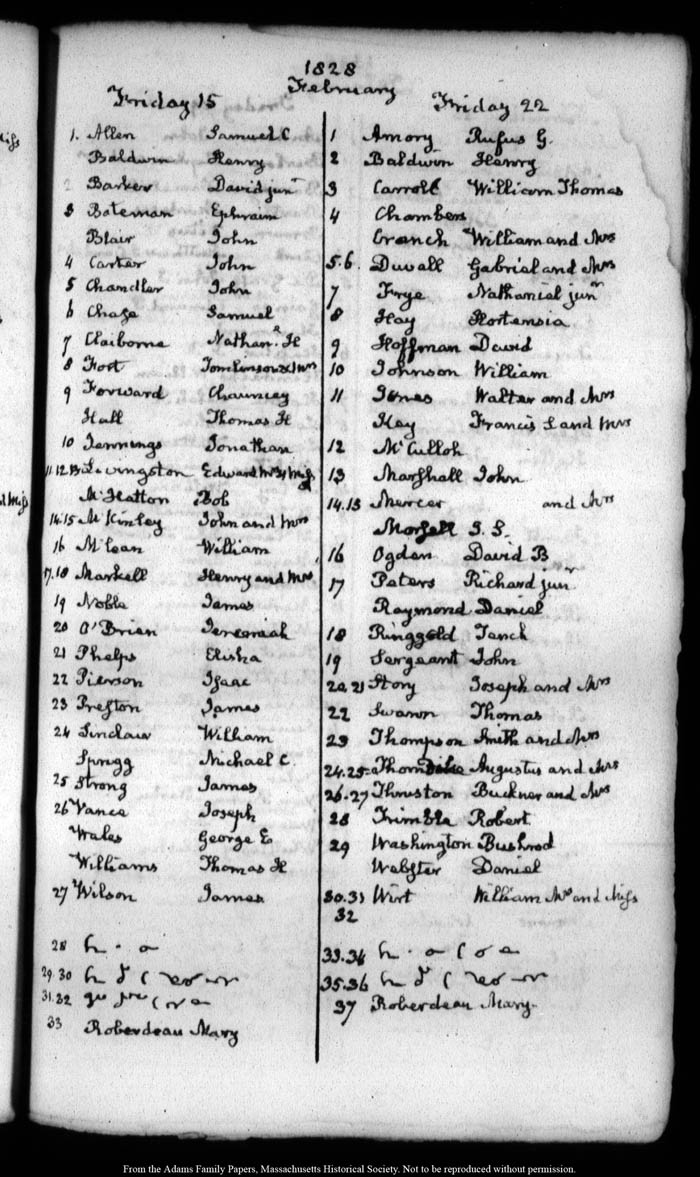 1828
February
Friday 15
1. Allen Samuel C
Baldwin Henry
2 Barker David junr
3 Bateman Ephraim
Blair John
4 Carter John
5 Chandler John
6 Chase Samuel
7 Claiborne Nathanl. H
8 Fort Tomlinson & Mrs
9 Forward Chauncey
Hall Thomas H
10 Jennings Jonathan
11.12.13 Livingston Edward Mrs & Miss
McHatton Bob
14.15 McKinley John and Mrs
16 McLean William
17.18 Markell Henry and Mrs
19 Noble James
20 O'Brien Jeremiah
21 Phelps Elisha
22 Pierson Isaac
23 Preston James
24 Sinclair William
Sprigg Michael C.
25 Strong James
26 Vance Joseph
Wales George E
Williams Thomas H
27 Wilson James
28
29.30
31.32
33 Roberdeau Mary
Friday 22
1 Amory Rufus G.
2 Baldwin Henry
3 Carroll William Thomas
4 Chambers
Cranch William and Mrs
5.6. Duvall Gabriel and Mrs
7 Frye Nathaniel junr
8 Hay Hortensia
9 Hoffman David
10 Johnson William
11 Jones Walter and Mrs
Key Francis S and Mrs
12 McCulloh
13 Marshall John
14.15 Mercer and Mrs
Morsell J. S.
16 Ogden David B
17 Peters Richard junr
Raymond Daniel
18 Ringgold Tench
19 Sergeant John
20.21 Story Joseph and Mrs
22 Swann Thomas
23 Thompson Smith and Mrs
24.25 Thorndike Augustus and Mrs
26.27 Thruston Buckner and Mrs
28 Trimble Robert
29 Washington Bushrod
Webster Daniel
30.31 Wirt William Mrs and Miss
32
33.34
35.36
37 Roberdeau Mary.
From the Adams Family Papers, Massachusetts Historical Society. Not to be reproduced without permission.